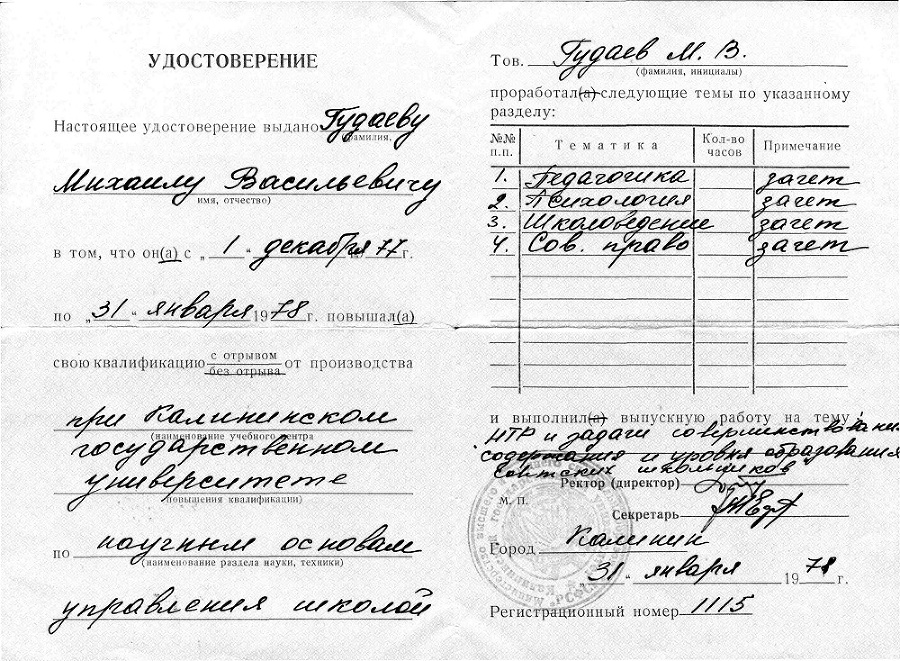 УДОСТОВЕРЕНИЕ
Настоящее удостоверение выдано Гудаеву
фамилия,
Михаилу Васильевичу
имя, отчество)
в том, что он(а) с „1“ декабря 1977 г.
по „31“ января 1978 г. повышал(а)
свою квалификацию с отрывом от производства
без отрыва
при Калининском
(наименование учебного центра
государственном
университете
повышения квалификации)
по научным основам
(наименование раздела науки, техники)
управления школой
Тов. Гудаев М. В.
(фамилия, инициалы)
проработал(а) следующие темы по указанному
разделу:
№№ п.п. Тематика Кол-во часов Примечание
1. Педагогика зачет
2. Психология зачет
3. Школоведение зачет
4. Сов. право зачет
и выполнил(а) выпускную работу на тему
„НТР и задачи совершенствования
содержания и уровня образования
советских школьников“
Ректор (директор)
М. П.
Секретарь
Город Калинин
„31“ января 1978 г.
Регистрационный номер 1115